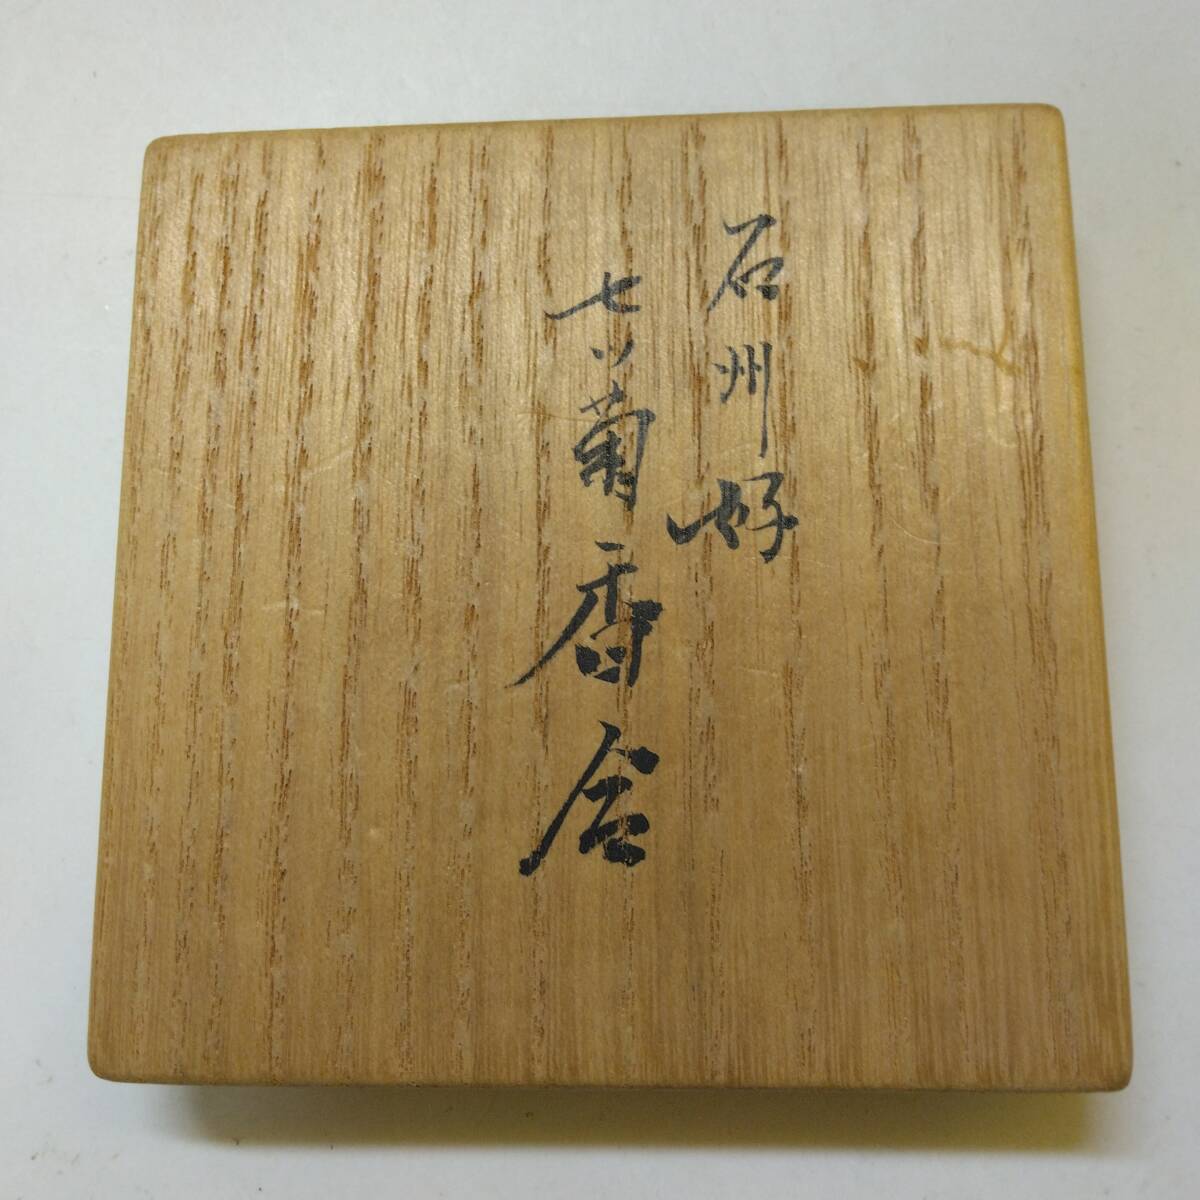 石州好
七ツ菊香合